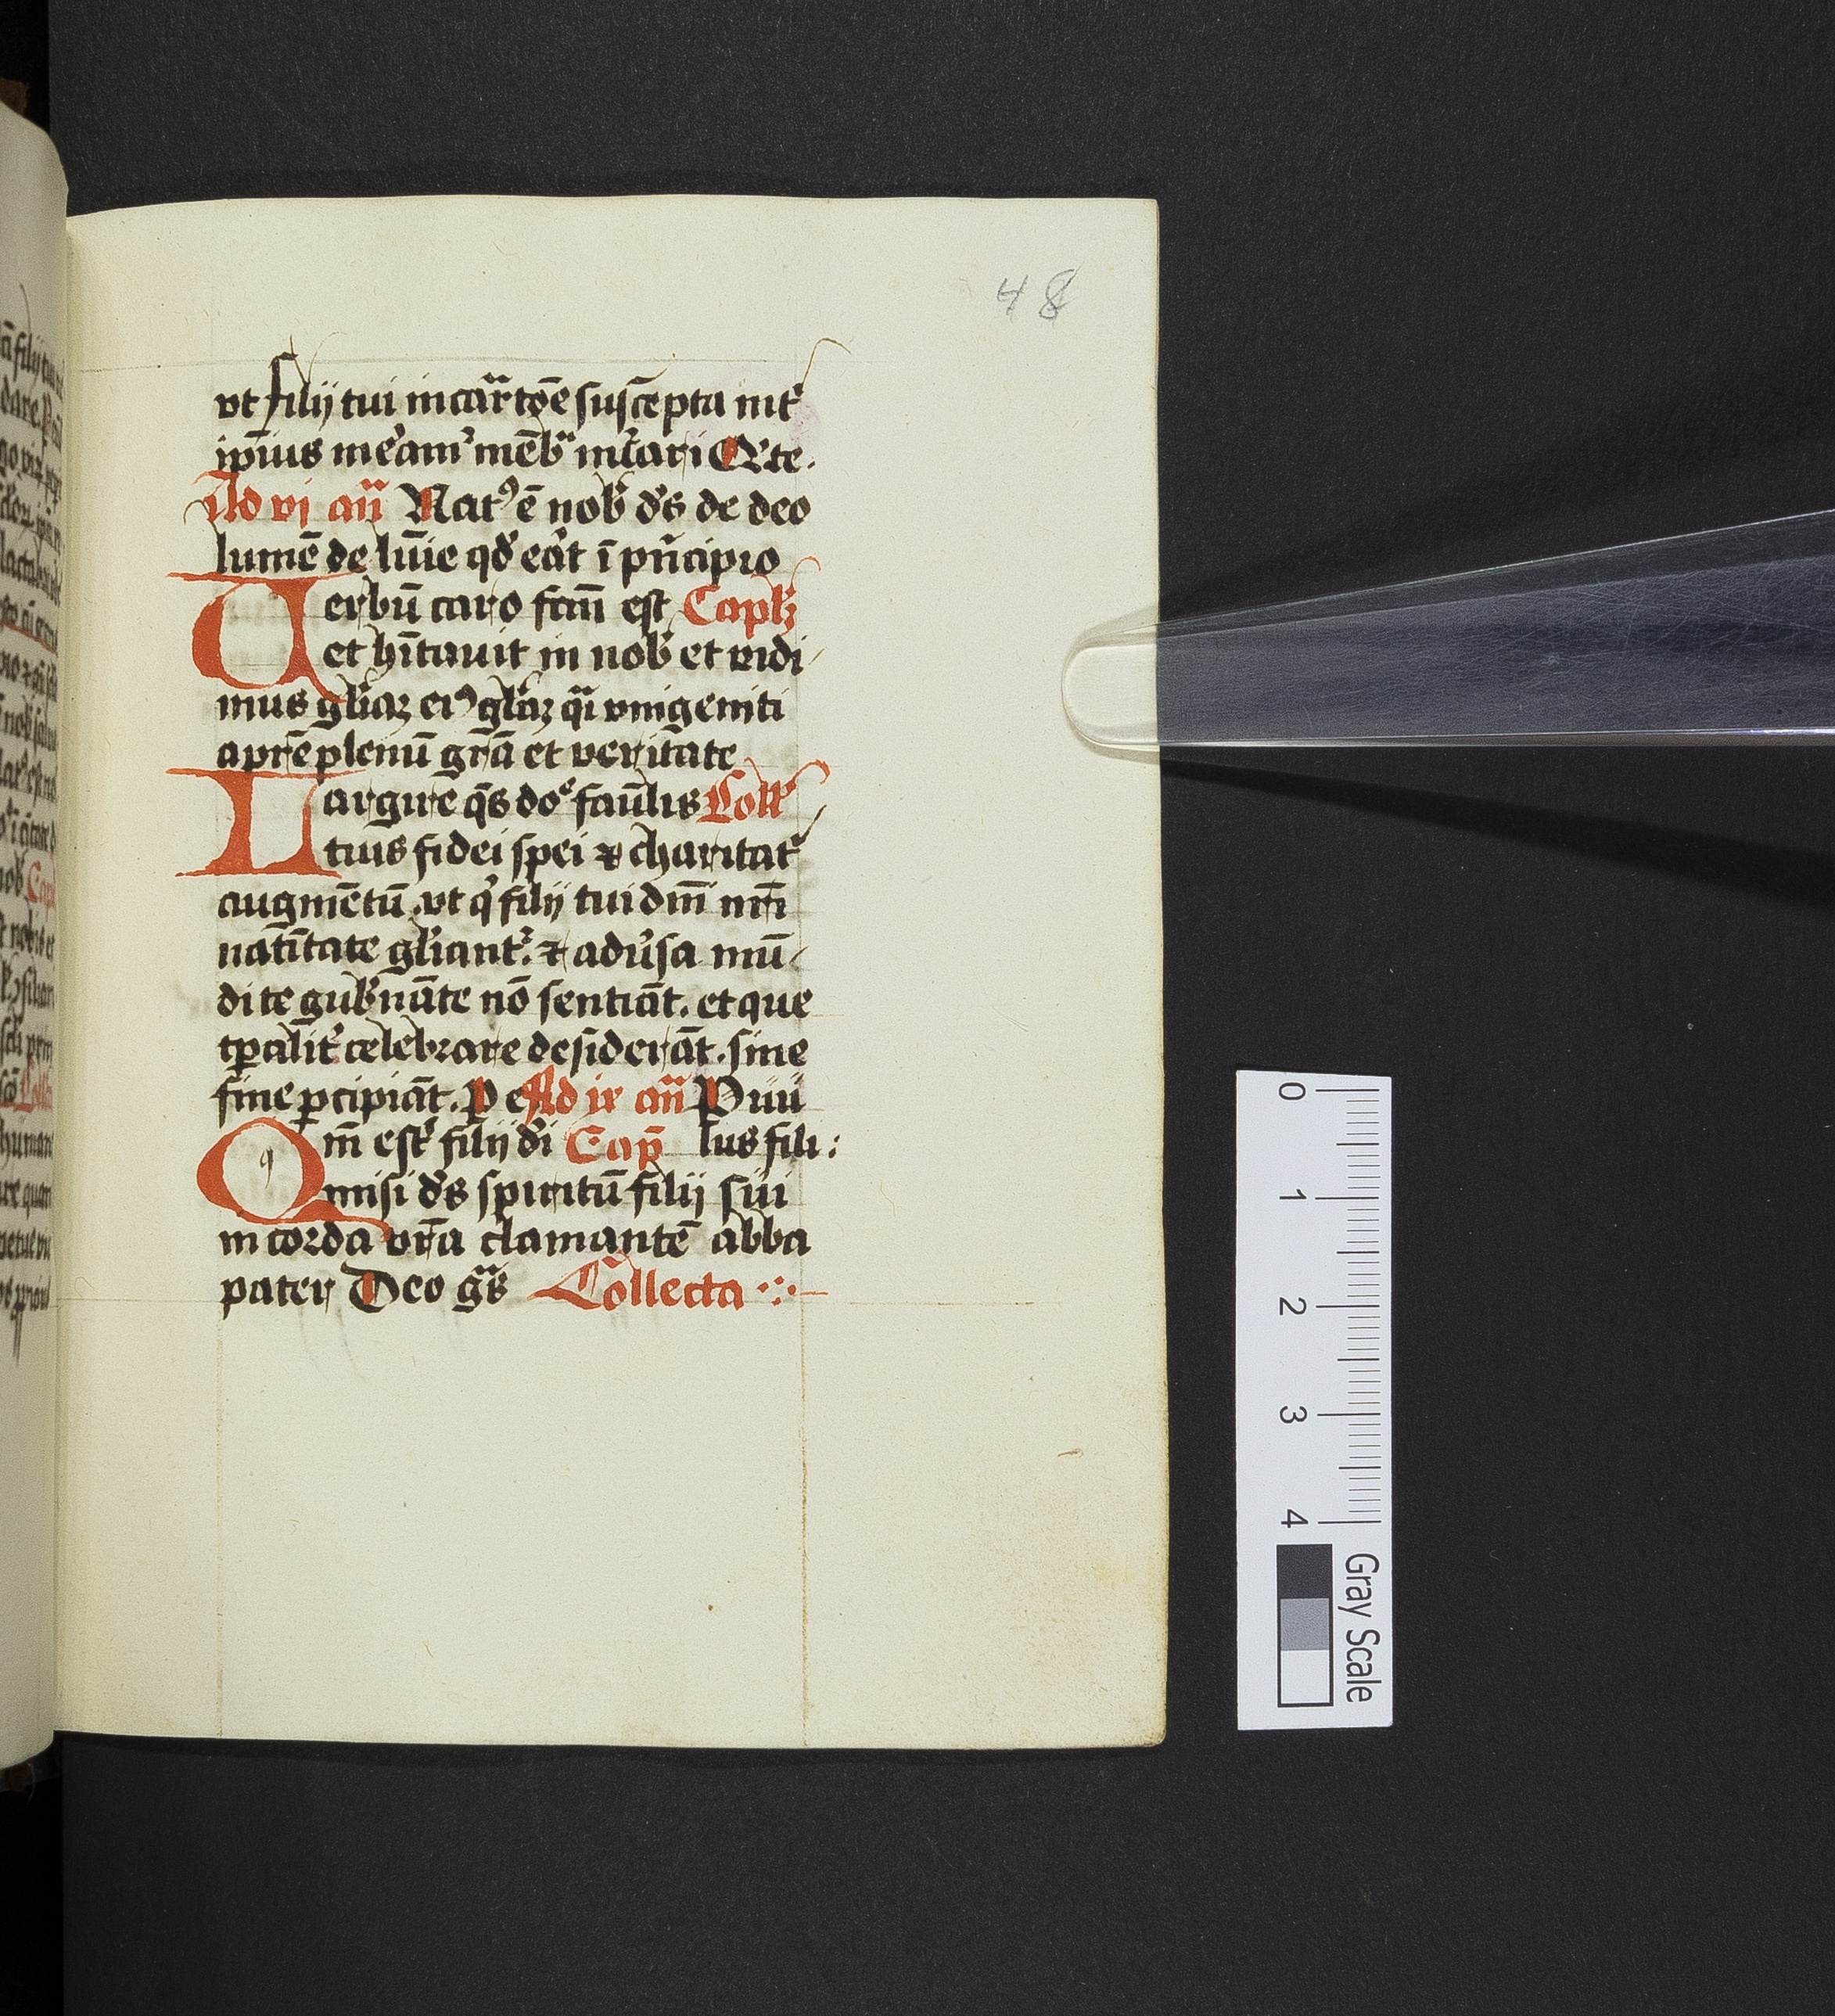 48
vt filij tui incar̃tõe suscẽpta int̉
ip̃ius me᷒am᷒ mẽb᷒ in᷒ari Q̉ te.
Ad vj añ Nat᷒ ẽ nob̉ d̉s de deo
lumẽ de lum̃ie qd̉ eãt ĩ pñcipio
Verbũ caro fcm̃ est Caplꝫ
et hĩtauit in nob̉ et vidi
mus gl̉iaꝫ ei᷒ gl̉iaꝫ q̃i vnigeniti
a pr̃e plenũ gr̃a et veritate
Largire q̃s do᷒ fam̃lis Coll̉
tuis fidei spei ⁊ charitat̉
augmẽtũ. vt q̉ filij tui dm̃ nr̃i
natĩtate gl̉iant᷒. ⁊ adũsa mũ
di te gub̉nãte nõ sentiãt. et que
tꝑalit̉ celebrare desiderãt. sine
fine ꝑcipiãt. P e Ad ix añ Puu
Qm̃ est̉ filij d̉i Cap̃ lus fili:
misi d̉s spiritũ filij sui
in corda vr̃a clamantẽ abba
pater Deo gr̃s Collecta
0
1
2
3
4
Gray Scale